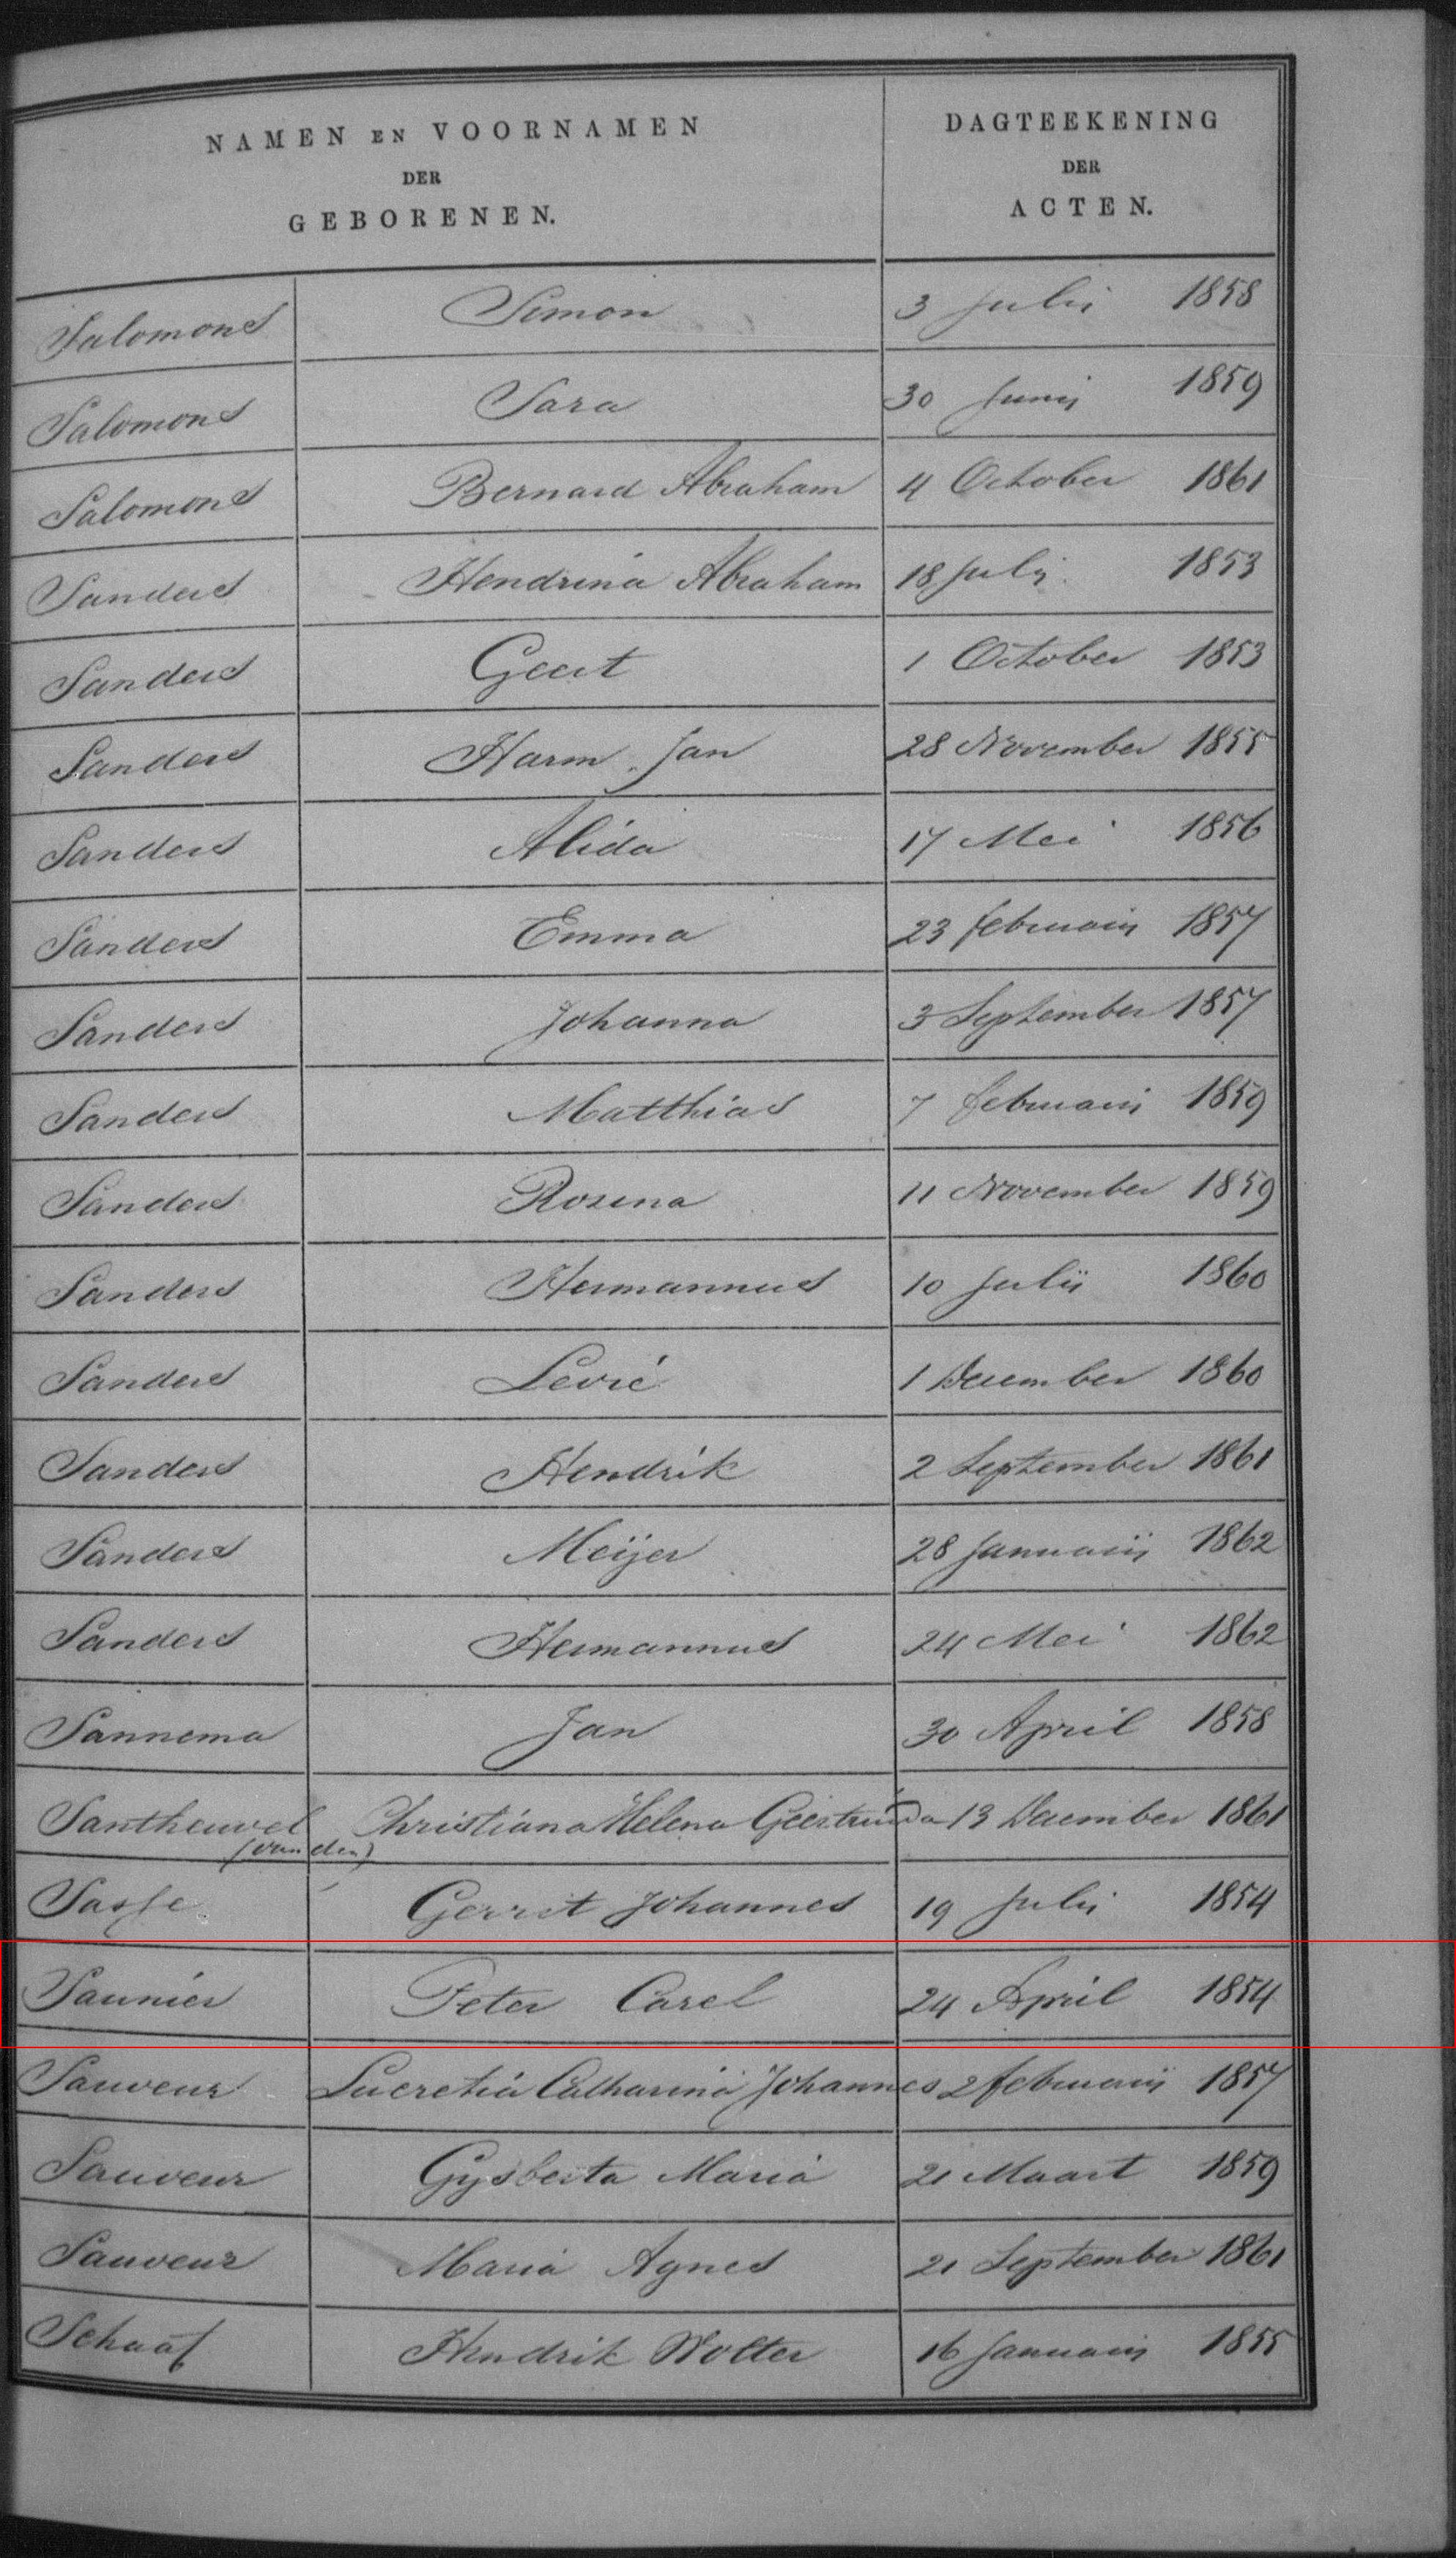 NAMEN EN VOORNAMEN DER GEBORENEN. DAGTEEKENING DER ACTEN.
Salomons Simon 3 Julij 1858
Salomons Sara 30 Junij 1859
Salomons Bernard Abraham 4 October 1861
Sanders Hendrina Abraham 18 Julij 1853
Sanders Geert 1 October 1853
Sanders Harm Jan 28 November 1855
Sanders Alida 17 Mei 1856
Sanders Emma 23 februarij 1857
Sanders Johanna 3 September 1857
Sanders Matthias 7 februarij 1859
Sanders Rosina 11 November 1859
Sanders Hermannus 10 Julij 1860
Sanders Levie 1 December 1860
Sanders Hendrik 2 September 1861
Sanders Meijer 28 Januarij 1862
Sanders Hermannus 24 Mei 1862
Sannema Jan 30 April 1858
Santheuvel (van den) Christiana Helena Geertruida 13 December 1861
Sasse Gerrit Johannes 19 Julij 1854
Saunier Peter Carel 24 April 1854
Sauveur Lucretia Catharina Johannes 2 februarij 1857
Sauveur Gysberta Maria 21 Maart 1859
Sauveur Maria Agnes 21 September 1861
Schaaf Hendrik Wolter 16 Januarij 1855